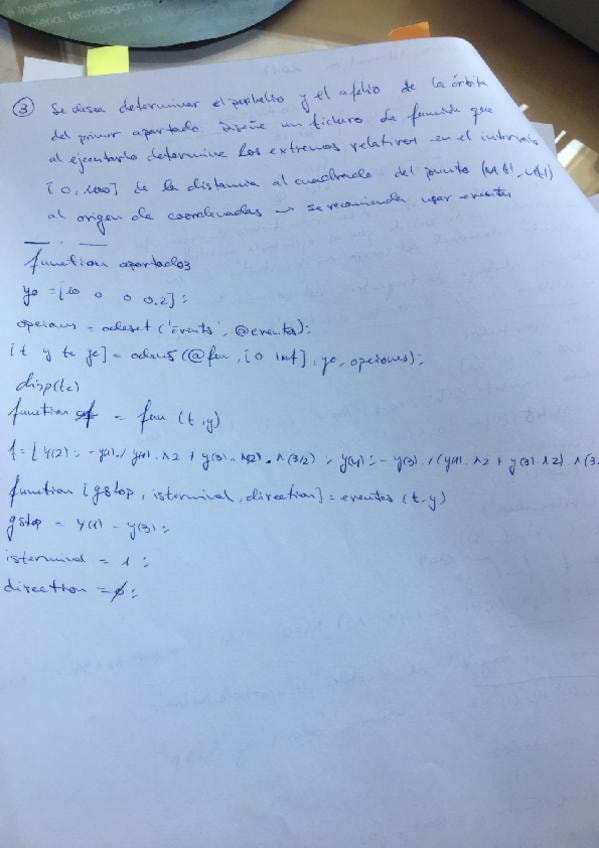 ingeniería.
niería. Tecnologías de
③ Se desea determinar el perihelio y el afelio de la órbita
del primer apartado diseñe un fichero de función que
al ejecutarlo determine los extremos relativos en el intervalo
[0, 100] de la distancia al cuadrado del punto
al origen de coordenadas → se recomienda usar eventos
function apartado3
y0 = [10 0 0 0.2];
opciones = odeset ('Events', @eventos);
[t y te ye] = ode45 (@fun, [0 inf], y0, opciones);
disp(te)
function f = fun (t,y)
f = [y(2); -y(1)./(y(1).^2 + y(3).^2).^(3/2); y(4); -y(3)./(y(1).^2 + y(3).^2).^(3
function [gstop, isterminal, direction] = eventos (t,y)
gstop = y(1) - y(3);
isterminal = 1;
direction = 0;